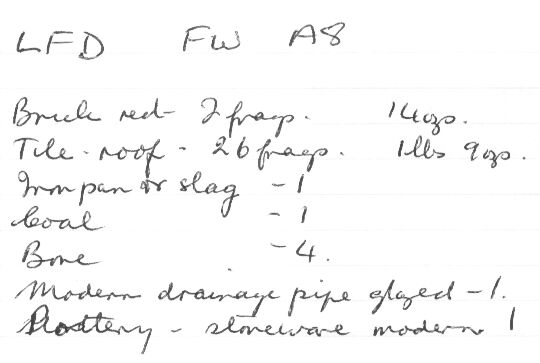 LFD FW A8
Brick red - 2 frags. 14ozs.
Tile - roof - 26 frags. 1lbs 9ozs.
Iron pan or slag - 1
Coal - 1
Bone - 4.
Modern drainage pipe glazed - 1.
Pottery - stoneware modern 1